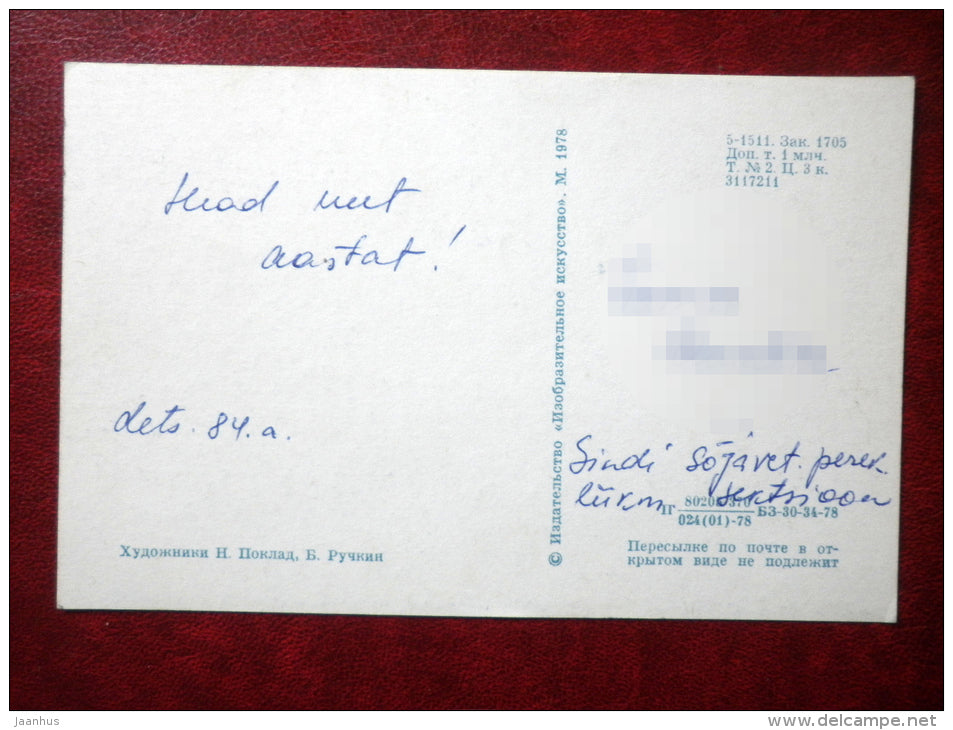 Head uut
aastat!
dets. 84. a.
Художники Н. Поклад, Б. Ручкин
© Издательство «Изобразительное искусство». М. 1978
5-1511. Зак. 1705
Доп. т. 1 млч.
Т. № 2. Ц. 3 к.
3117211
Sindi Sõjavet. perek.
liikm. sektsioon
ПГ 370 БЗ-30-34-78
024(01)-78
Пересылке по почте в от-
крытом виде не подлежит
Jaanhus
www.delcampe.net